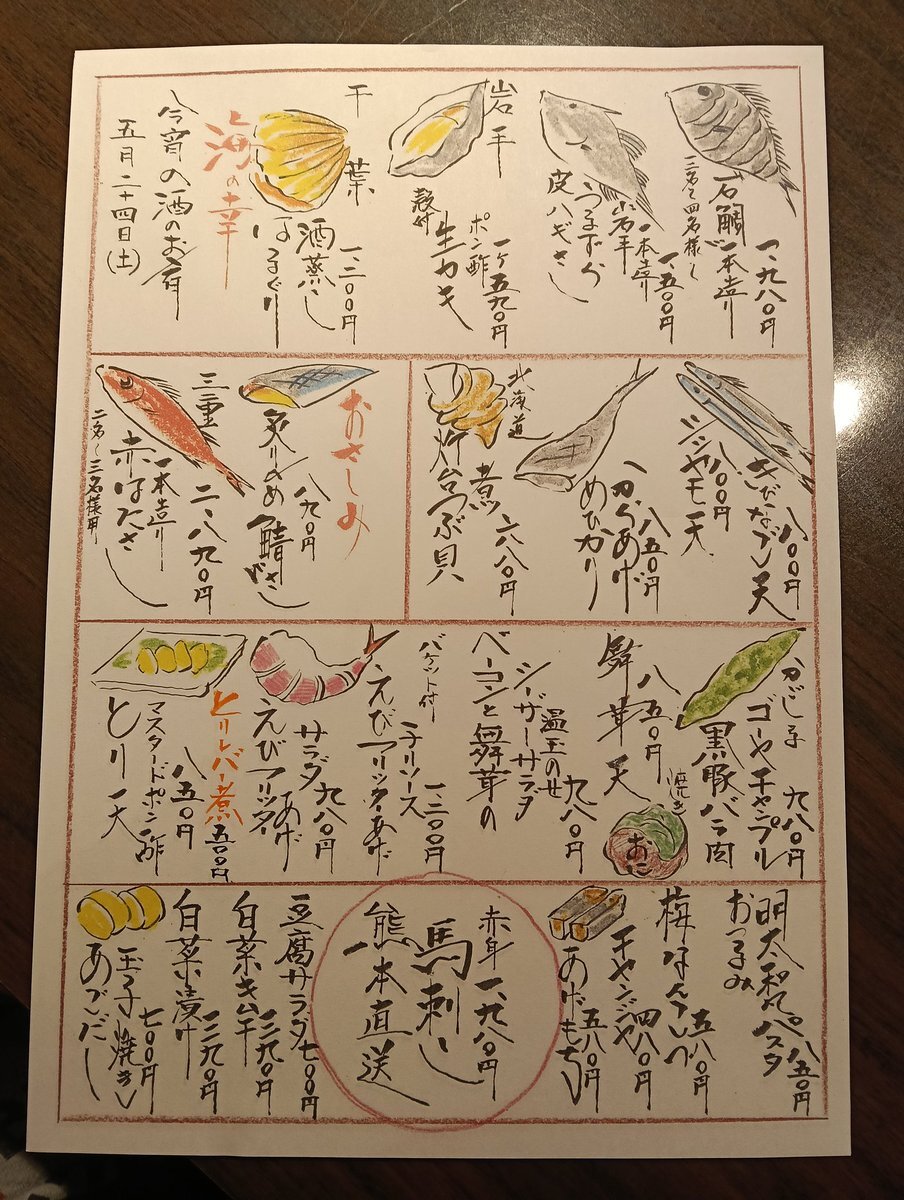 石鯛 一本造り
一、九八〇円
三名〜四名様
うまずら
皮ハギさし
岩手
一本造り
一、五〇〇円
岩手
殻付
生カキ
ポン酢
一ケ五九〇円
千葉
はまぐり
酒蒸し
一、二〇〇円
海の幸
今宵の酒のお肴
五月二十四日(土)
きびなご天
八〇〇円
シシャモ天
八〇〇円
めひかり
からあげ
八五〇円
北海道
灯台つぶ貝
煮
六八〇円
おさしみ
炙りしめ鯖さし
八九〇円
三重
赤はたさし
一本造り
二、八九〇円
二名〜三名様用
ゴーヤチャンプル
九八〇円
黒豚バラ肉
舞茸天
八五〇円
焼き
おに
ベーコンと舞茸の
シーザーサラダ
温玉のせ
九八〇円
バケット付
えびフリッターあげ
チリソース
一、二〇〇円
えびフリッター
あげ
サラダ
九八〇円
とりレバー煮
五〇〇円
とり天
マスタードポン酢
八五〇円
明太和風パスタ
八五〇円
おつまみ
梅なんこつ
五八〇円
チャンジャ
四八〇円
あげもち
五八〇円
赤身
一、九八〇円
馬刺し
熊本直送
豆腐サラダ
七〇〇円
白菜キムチ
三九〇円
白菜漬け
三九〇円
玉子焼き
七〇〇円
あごだし